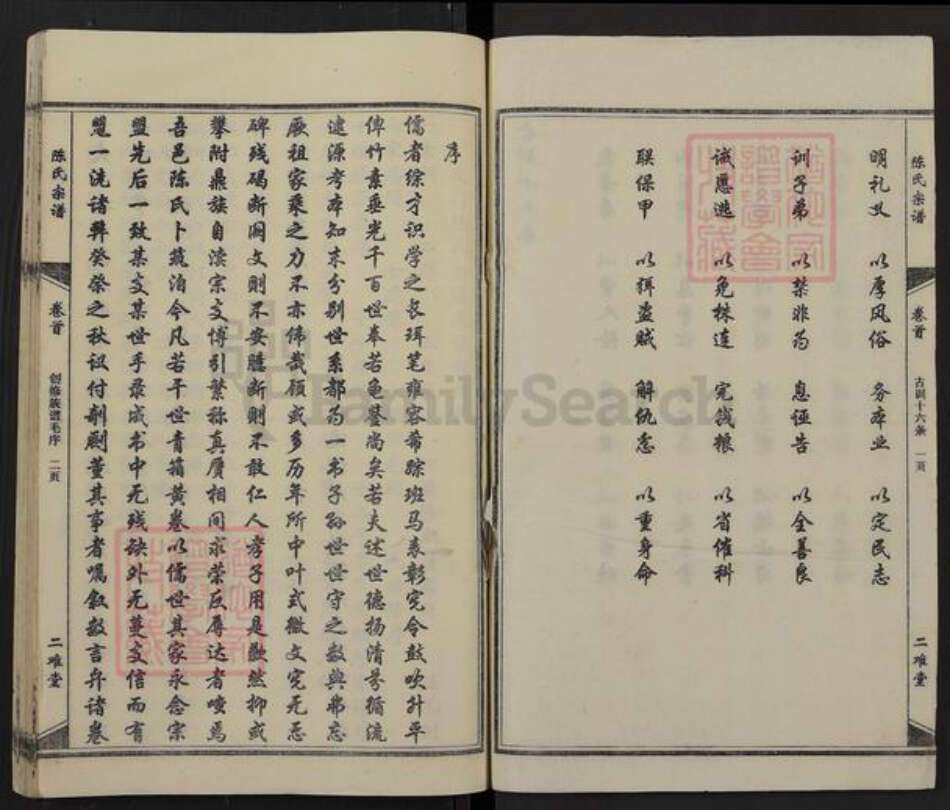 陈氏宗谱
卷首
古训十六条 一页
二难堂
明礼义 以厚风俗 务本业 以定民志
训子弟 以禁非为 息诬告 以全善良
诫匿逃 以免株连 完钱粮 以省催科
联保甲 以弭盗贼 解仇忿 以重身命
序
儒者综才识学之长珥笔雍容希踪班马表彰宪令鼓吹升平
俾竹素垂光千百世奉若龟鉴尚矣若夫述世德扬清芬循流
逮源考本知末分别世系都为一书子孙世世守之数典弗忘
厥祖家乘之力不亦伟哉顾或多历年所中叶式微文宪无
碑残碣断阙文则不安臆断则不敢仁人孝子用是黝然抑或
攀附鼎族自渎宗支博引繁称真赝相间求荣反辱达者嗤焉
吾邑陈氏卜筑泊今凡若干世青箱黄卷以儒世其家永念宗
盟先后一致某支某世手录成书中无残缺外无蔓支信而有
一洗诸弊癸癸之秋议付剞劂董其事者嘱叙数言弁诸卷
陈氏宗谱
卷首
创修族谱毛序 二页
二难堂
FamilySearch